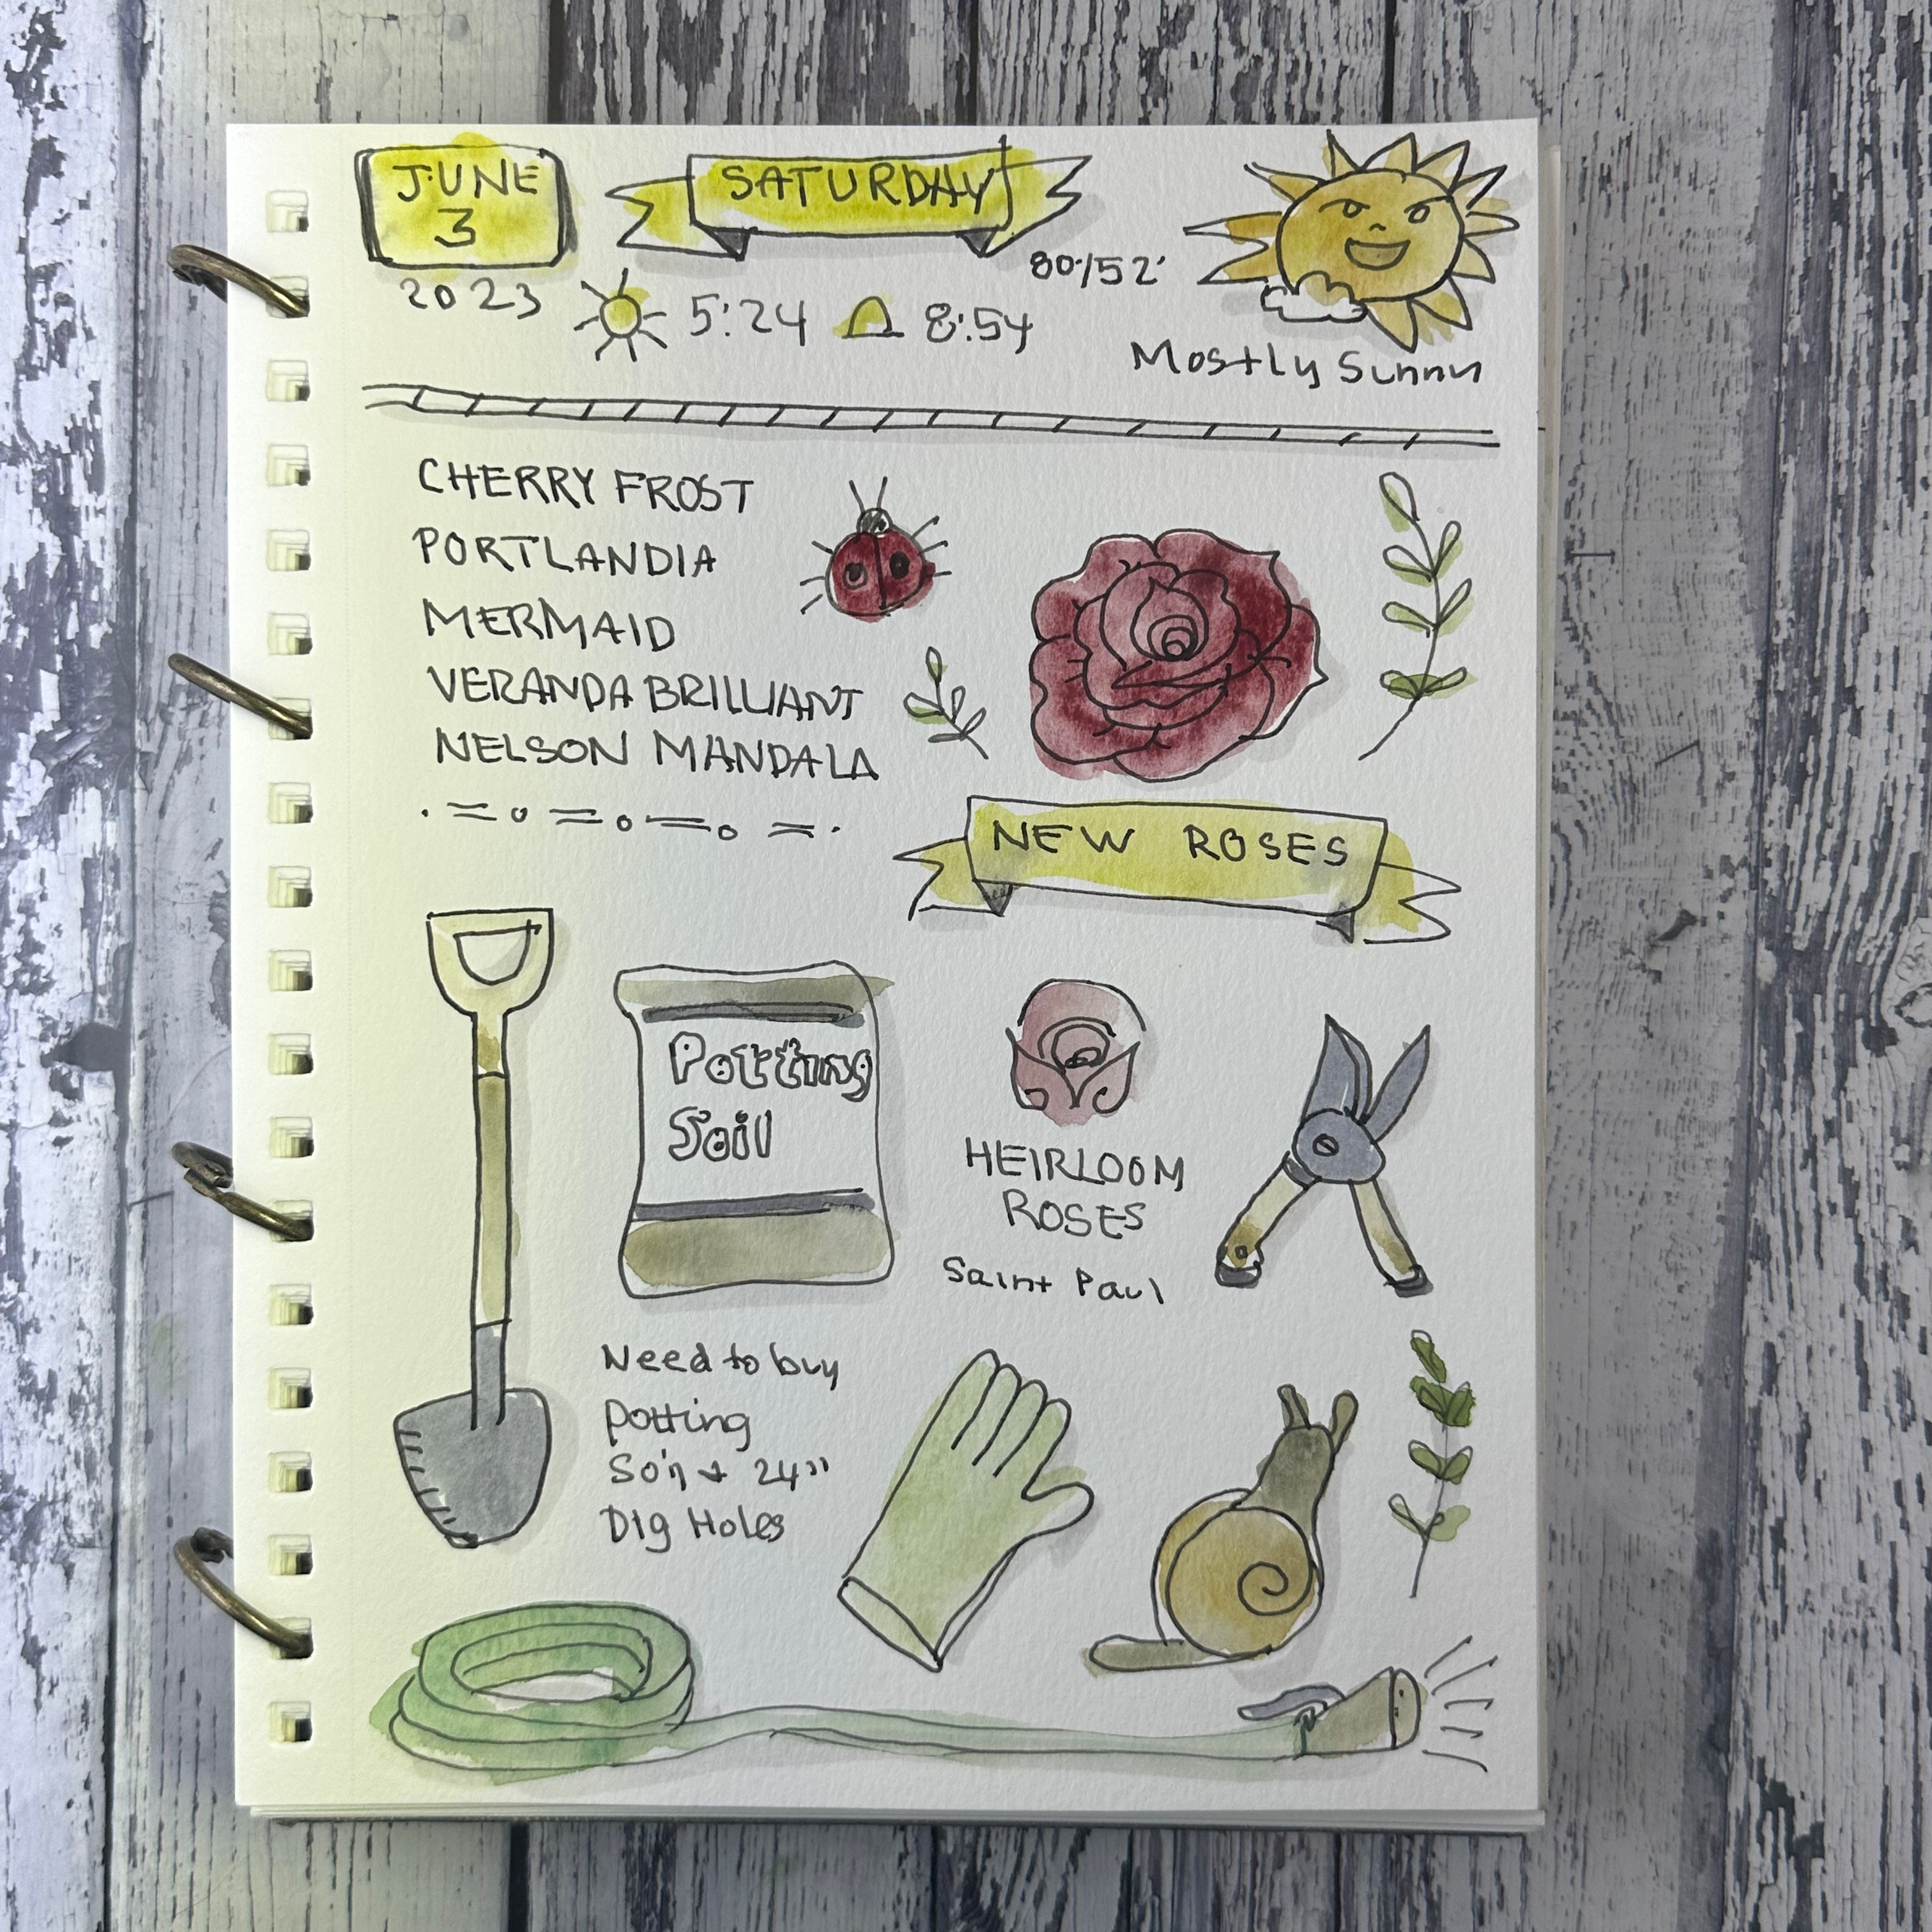 JUNE
3
2023
SATURDAY
5:24 8:54
80°/52°
Mostly Sunny
CHERRY FROST
PORTLANDIA
MERMAID
VERANDA BRILLIANT
NELSON MANDALA
NEW ROSES
Potting
Soil
HEIRLOOM
ROSES
Saint Paul
Need to buy
potting
Soil + 24"
Dig Holes